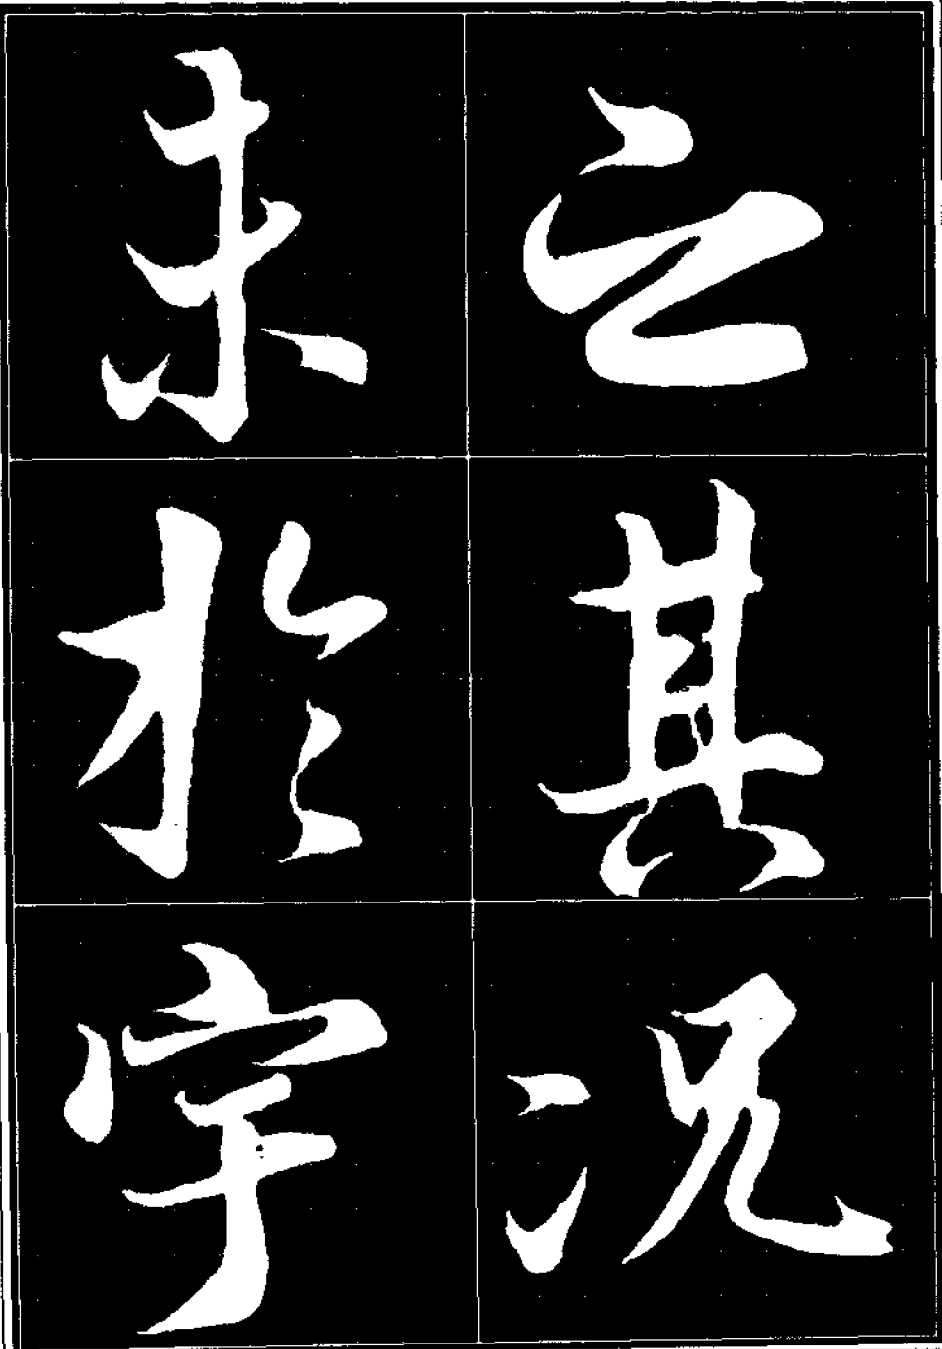 之其况
未於宇